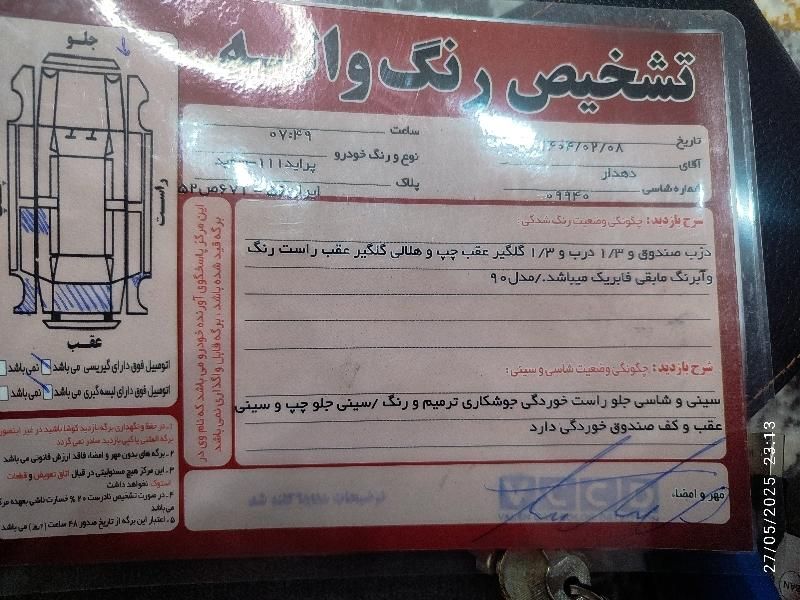 تشخیص رنگ و
تاریخ ۱۴۰۴/۰۲/۰۸ ساعت ۰۷:۴۹
آقای دهدار نوع و رنگ خودرو پراید۱۱۱-سفید
شماره شاسی ۰۹۹۴۰ پلاک
شرح بازدید: چگونگی وضعیت رنگ شدگی:
درب صندوق و ۱/۳ درب و ۱/۳ گلگیر عقب چپ و هلالی گلگیر عقب راست رنگ
وآبرنگ مابقی فابریک میباشد./مدل۹۰
شرح بازدید: چگونگی وضعیت شاسی و سینی:
سینی و شاسی جلو راست خوردگی جوشکاری ترمیم و رنگ /سینی جلو چپ و سینی
عقب و کف صندوق خوردگی دارد
مهر و امضاء:
VCCD
این مرکز پاسخگوی آورنده خودرو می باشد که نام وی در
برگه قید شده باشد ، برگه قابل واگذاری نمی باشد
جلو
راست
عقب
اتومبیل فوق دارای گیرپسی می باشد نمی باشد
اتومبیل فوق دارای لیسه گیری می باشد نمی باشد
۱ـ در حفظ و نگهداری برگه بازدید کوشا باشید در غیر اینصورت
برگه المثنی یا کپی بازدید صادر نمی گردد
۲ـ برگه های بدون مهر و امضاء فاقد ارزش قانونی می باشد
۳ ـ این مرکز هیچ مسئولیتی در قبال اتاق تعویض و قطعات
استوک نخواهد داشت
۴ ـ در صورت تشخیص نادرست ۲۰ % خسارت ناشی بعهده مرکز
می باشد
۵ ـ اعتبار این برگه از تاریخ صدور ۴۸ ساعت (۲روز) می باشد
27/05/2025 23:13